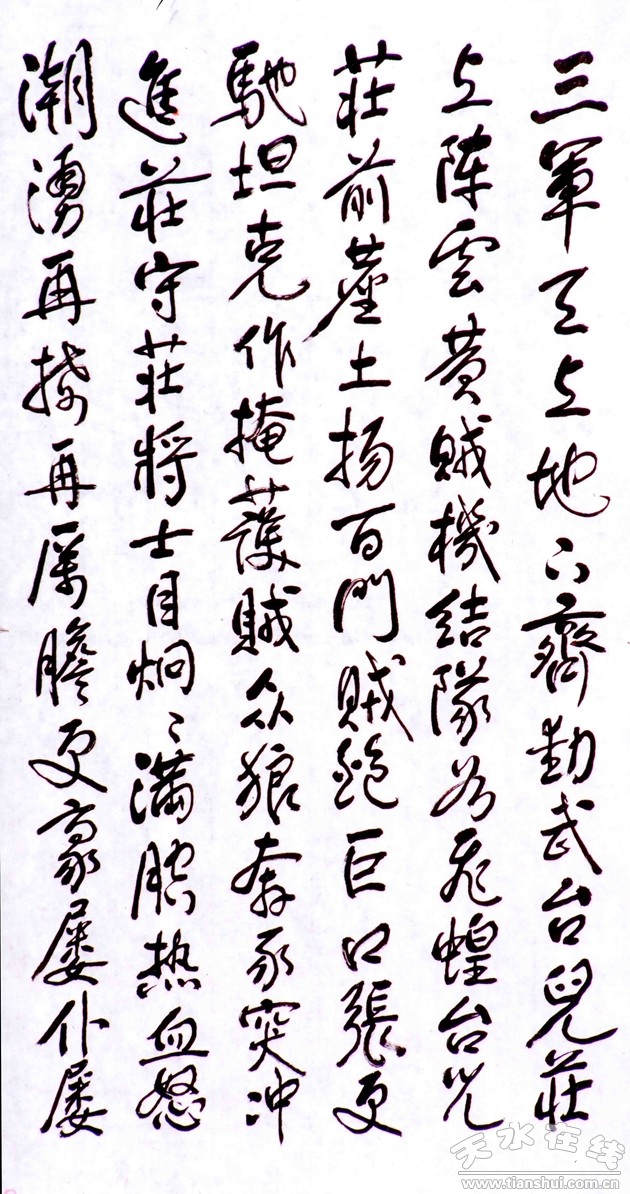 三軍天上地下齊動武台兒莊
上陣雲黄賊機結隊如飛蝗台兒
莊前塵土扬百門賊炮巨口張更
馳坦克作掩護賊众狼奔豕突冲
進莊守莊將士目炯〻满腔热血怒
潮湧再接再厲膽更豪屡仆屡
天水在线
www.tianshui.com.cn